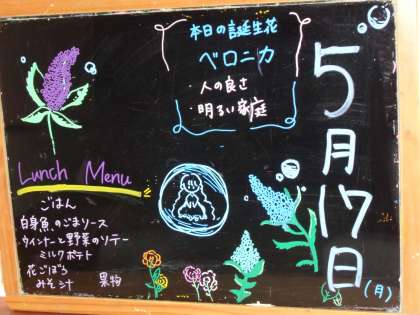 5月17日
(月)
本日の誕生花
ベロニカ
・人の良さ
・明るい家庭
Lunch Menu
ごはん
白身魚のごまソース
ウインナーと野菜のソテー
ミルクポテト
花ごぼう
みそ汁
果物